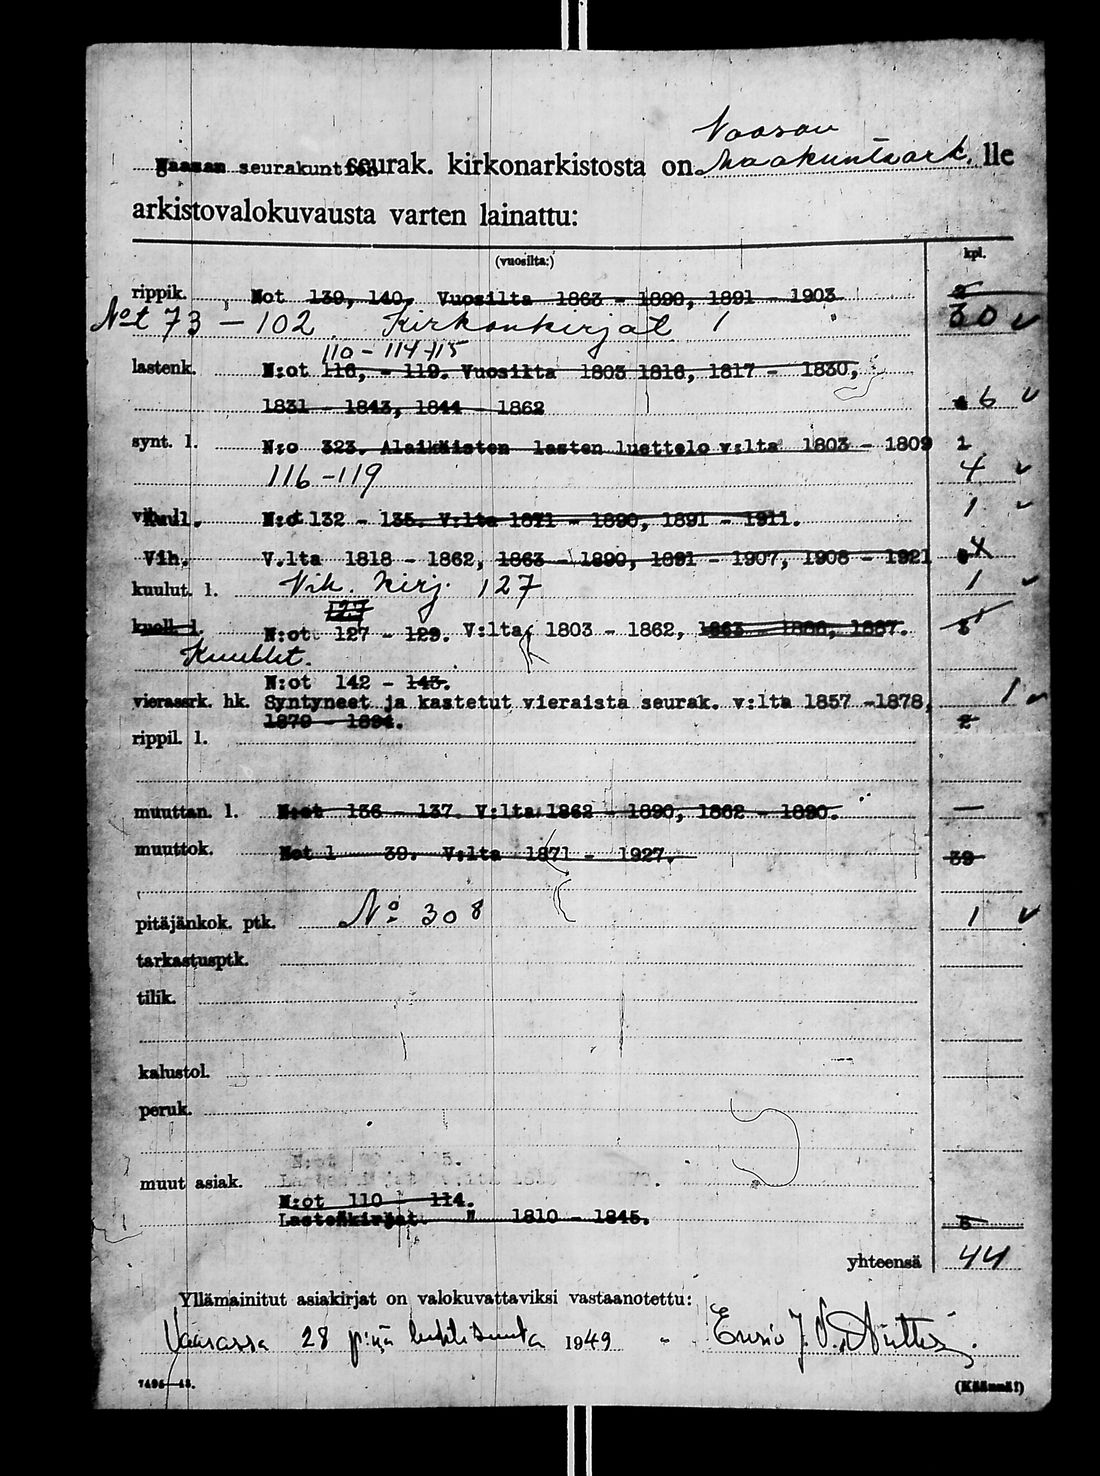 Vaasan
Vaasan seurakuntien seurak. kirkonarkistosta on Maakuntaark. lle
arkistovalokuvausta varten lainattu:
(vuosilta:) kpl.
rippik. Not 139, 140, Vuosilta 1863 - 1890, 1891 - 1903 2
Not 73 - 102 Kirkonkirjat 1 30 ✓
110 - 114-115
lastenk. N:ot 116, - 119. Vuosilta 1803 1816, 1817 - 1830,
1831 - 1843, 1844 - 1862 6 ✓
synt. l. N:o 323. Alaikäisten lasten luettelo v:lta 1803 - 1809 1
116 - 119 4 ✓
N:ot 132 - 135. V:lta 1871 - 1890, 1891 - 1911. 1 ✓
Vih. V.lta 1818 - 1862, 1863 - 1890, 1891 - 1907, 1908 - 1921 4
kuulut. l. Vih. kirj. 127 1 ✓
127
kuoll. l. N:ot 127 - 129. V:lta 1803 - 1862, 1863 - 1886, 1887.
Kuullut.
N:ot 142 - 143.
vierassrk. hk. Syntyneet ja kastetut vieraista seurak. v:lta 1857 -1878, 1 ✓
1879 - 1894. 2
rippil. l.
muuttan. l. N:ot 136 - 137. V:lta 1862 - 1890, 1862 - 1890. —
muuttok. Not 1 - 39. V:lta 1871 - 1927. 39
pitäjänkok. ptk. No 308 1 ✓
tarkastusptk.
tilik.
kalustol.
peruk.
muut asiak.
N:ot 110 - 114.
Lastenkirjat " 1810 - 1845. 5
yhteensä 44
Yllämainitut asiakirjat on valokuvattaviksi vastaanotettu:
Vaasassa 28 p:nä huhtikuuta 1949
(Käännä!)